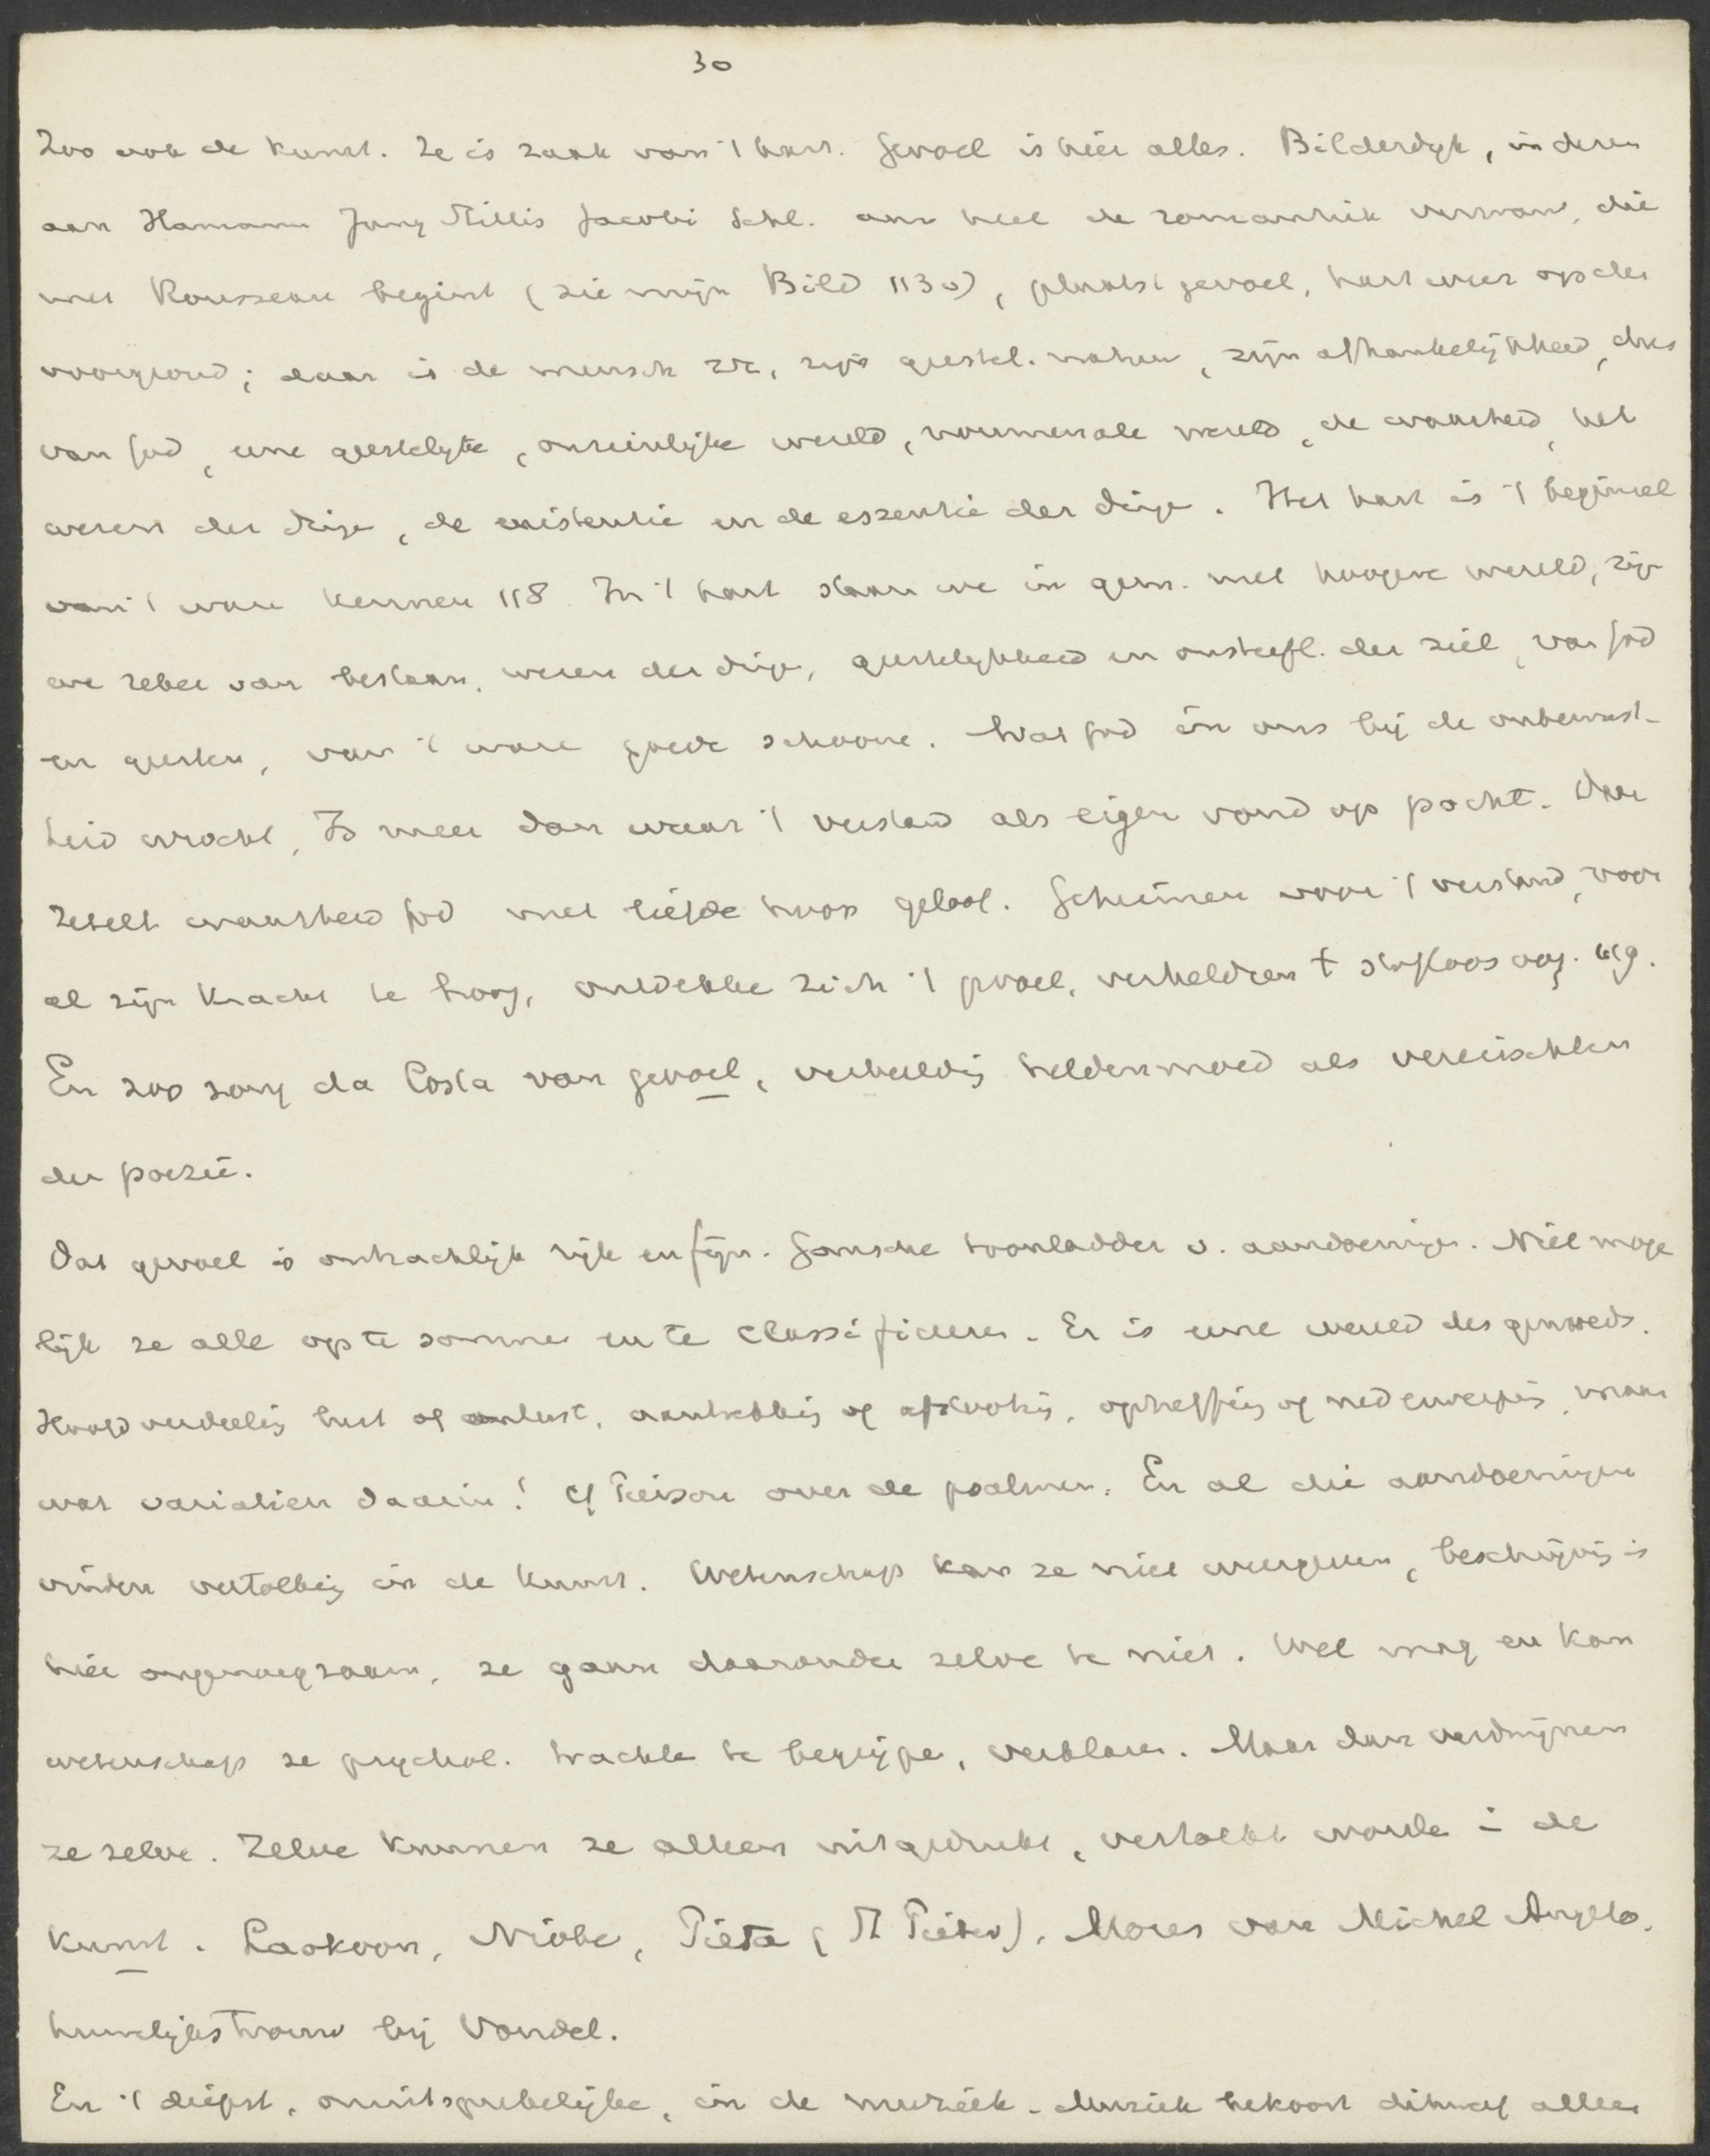 30
Zoo ook de kunst. Ze is zaak van 't hart. Gevoel is hier alles. Bilderdyk, in deren
aan Hamann Jung Stillig Jacobi Schl. aan heel de romantiek verwant, die
met Rousseau begint (zie mijn Bild 113v), plaatst gevoel, hart weer op den
voorgrond; daar is de mensch zie, zijn geestel. natuur, zijn afhankelijkheid, dus
van God, eene geestelyke, onzienlijke wereld, noumenale wereld, de waarheid, het
wezen der dinge, de existentie en de essentie der dinge. Het hart is 't beginsel
van 't ware kennen 118 In 't hart staan we in gem. met hoogere wereld, zijn
we zeker van bestaan, wezen der dinge, geestelykheid en onsterfl. der ziel, van God
en geesten, van 't ware goede schoone. Wat God in ons bij de onbewust-
heid wrocht, Is meer dan waar 't verstand als eigen vond op pocht. Daar
zetelt waarheid God met liefde hoop geloof. Geheimen voor 't verstand, voor
al zijn kracht te hoog, ontdekke zich 't gevoel, verheldren 't stofloos oog. 119.
En zoo zong da Costa van gevoel, verbeeldig heldenmoed als vereischten
der poezie.
Dat gevoel is ontzachlijk rijk en fijn. Gansche toonladder v. aandoeninge. Niet moge
lijk ze alle op te somme en te classificeren. Er is eene wereld des gemoeds.
Hoofdverdeelig lust of onlust, aantrekkig of afstootig, opheffing of nederwerpig, maar
wat variatien daarin! Cf Pierson over de psalmen. En al die aandoeningen
vinden vertolkig in de kunst. Wetenschap kan ze niet weergeven, beschrijvig is
hier ongenoegzaam, ze gaan daaronder zelve te niet. Wel mag en kan
wetenschap ze psychol. trachte te begrijpe, verklaren. Maar dan verdwijnen
ze zelve. Zelve kunnen ze alleen uitgedrukt, vertolkt worde i de
kunst. Laokoon, Niobe, Pieta (St Pieter), Mozes van Michel Angelo.
huwelijkstrouw bij Vondel.
En 't diepst, onuitsprekelijke, in de muziek. Muziek bekoort dikwijf allen